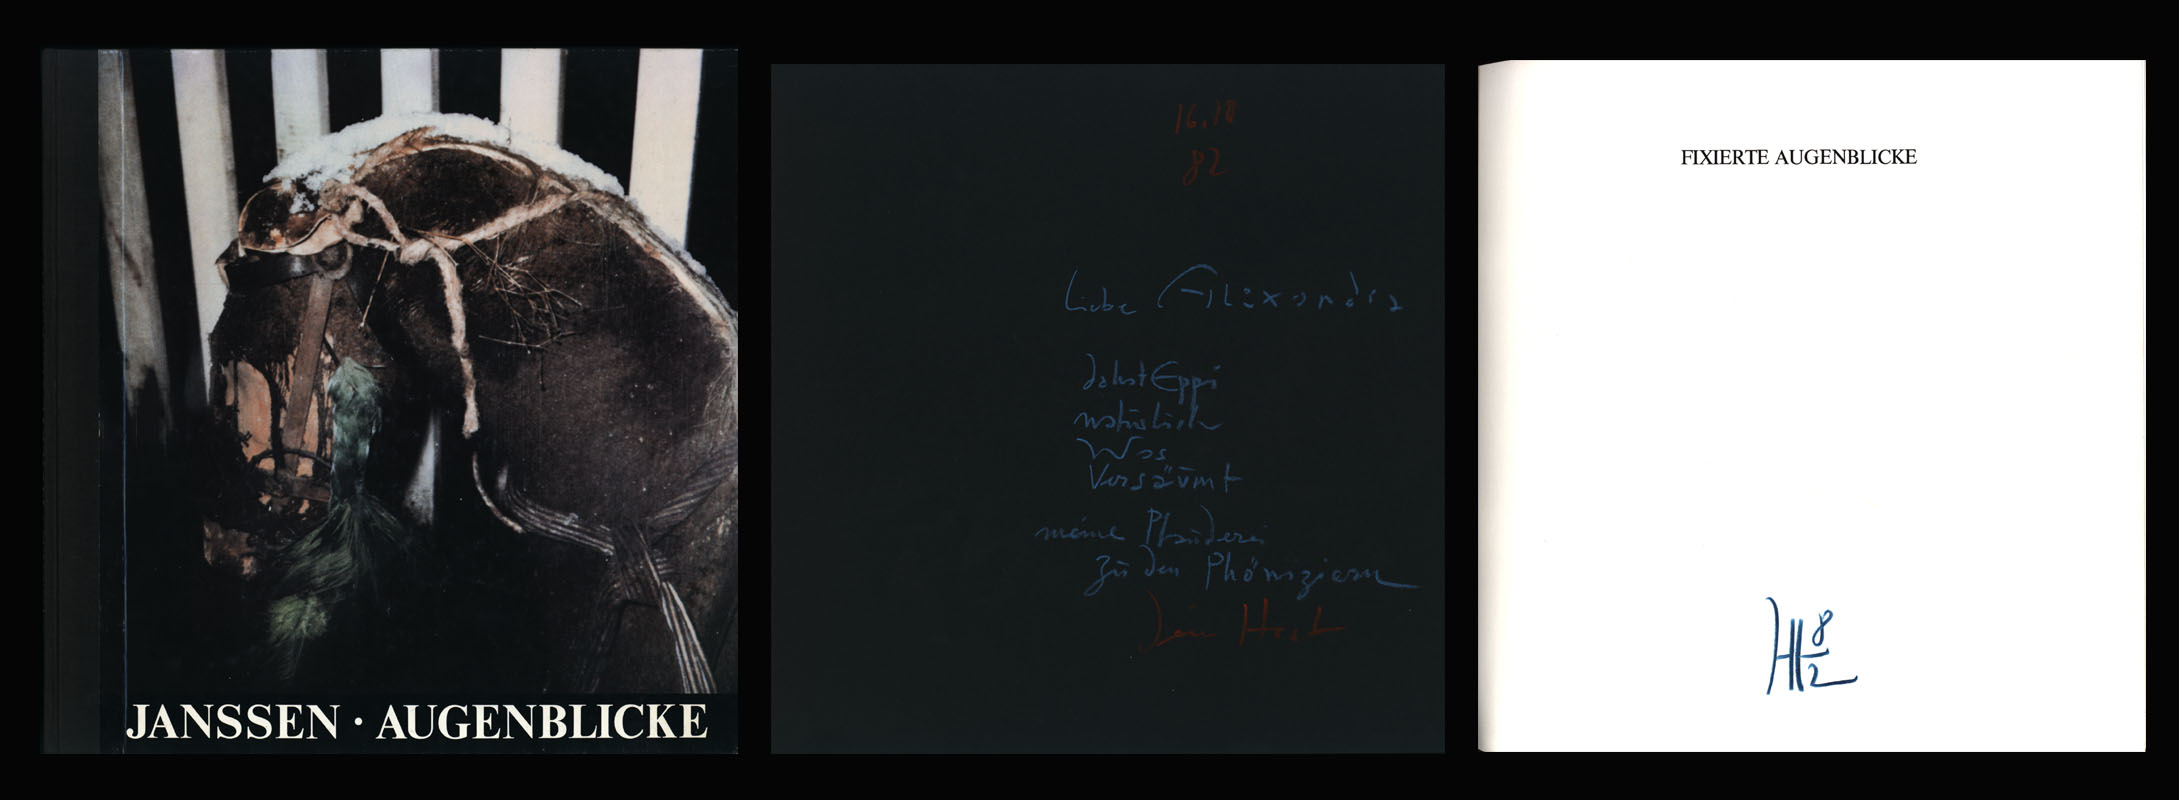 JANSSEN · AUGENBLICKE
16.10
82
Liebe Alexandra
da hst Eppi
natürlich
Was
Versäumt
meine Plauderei
zu den Phöniziern
Dein Horst
FIXIERTE AUGENBLICKE
8
2